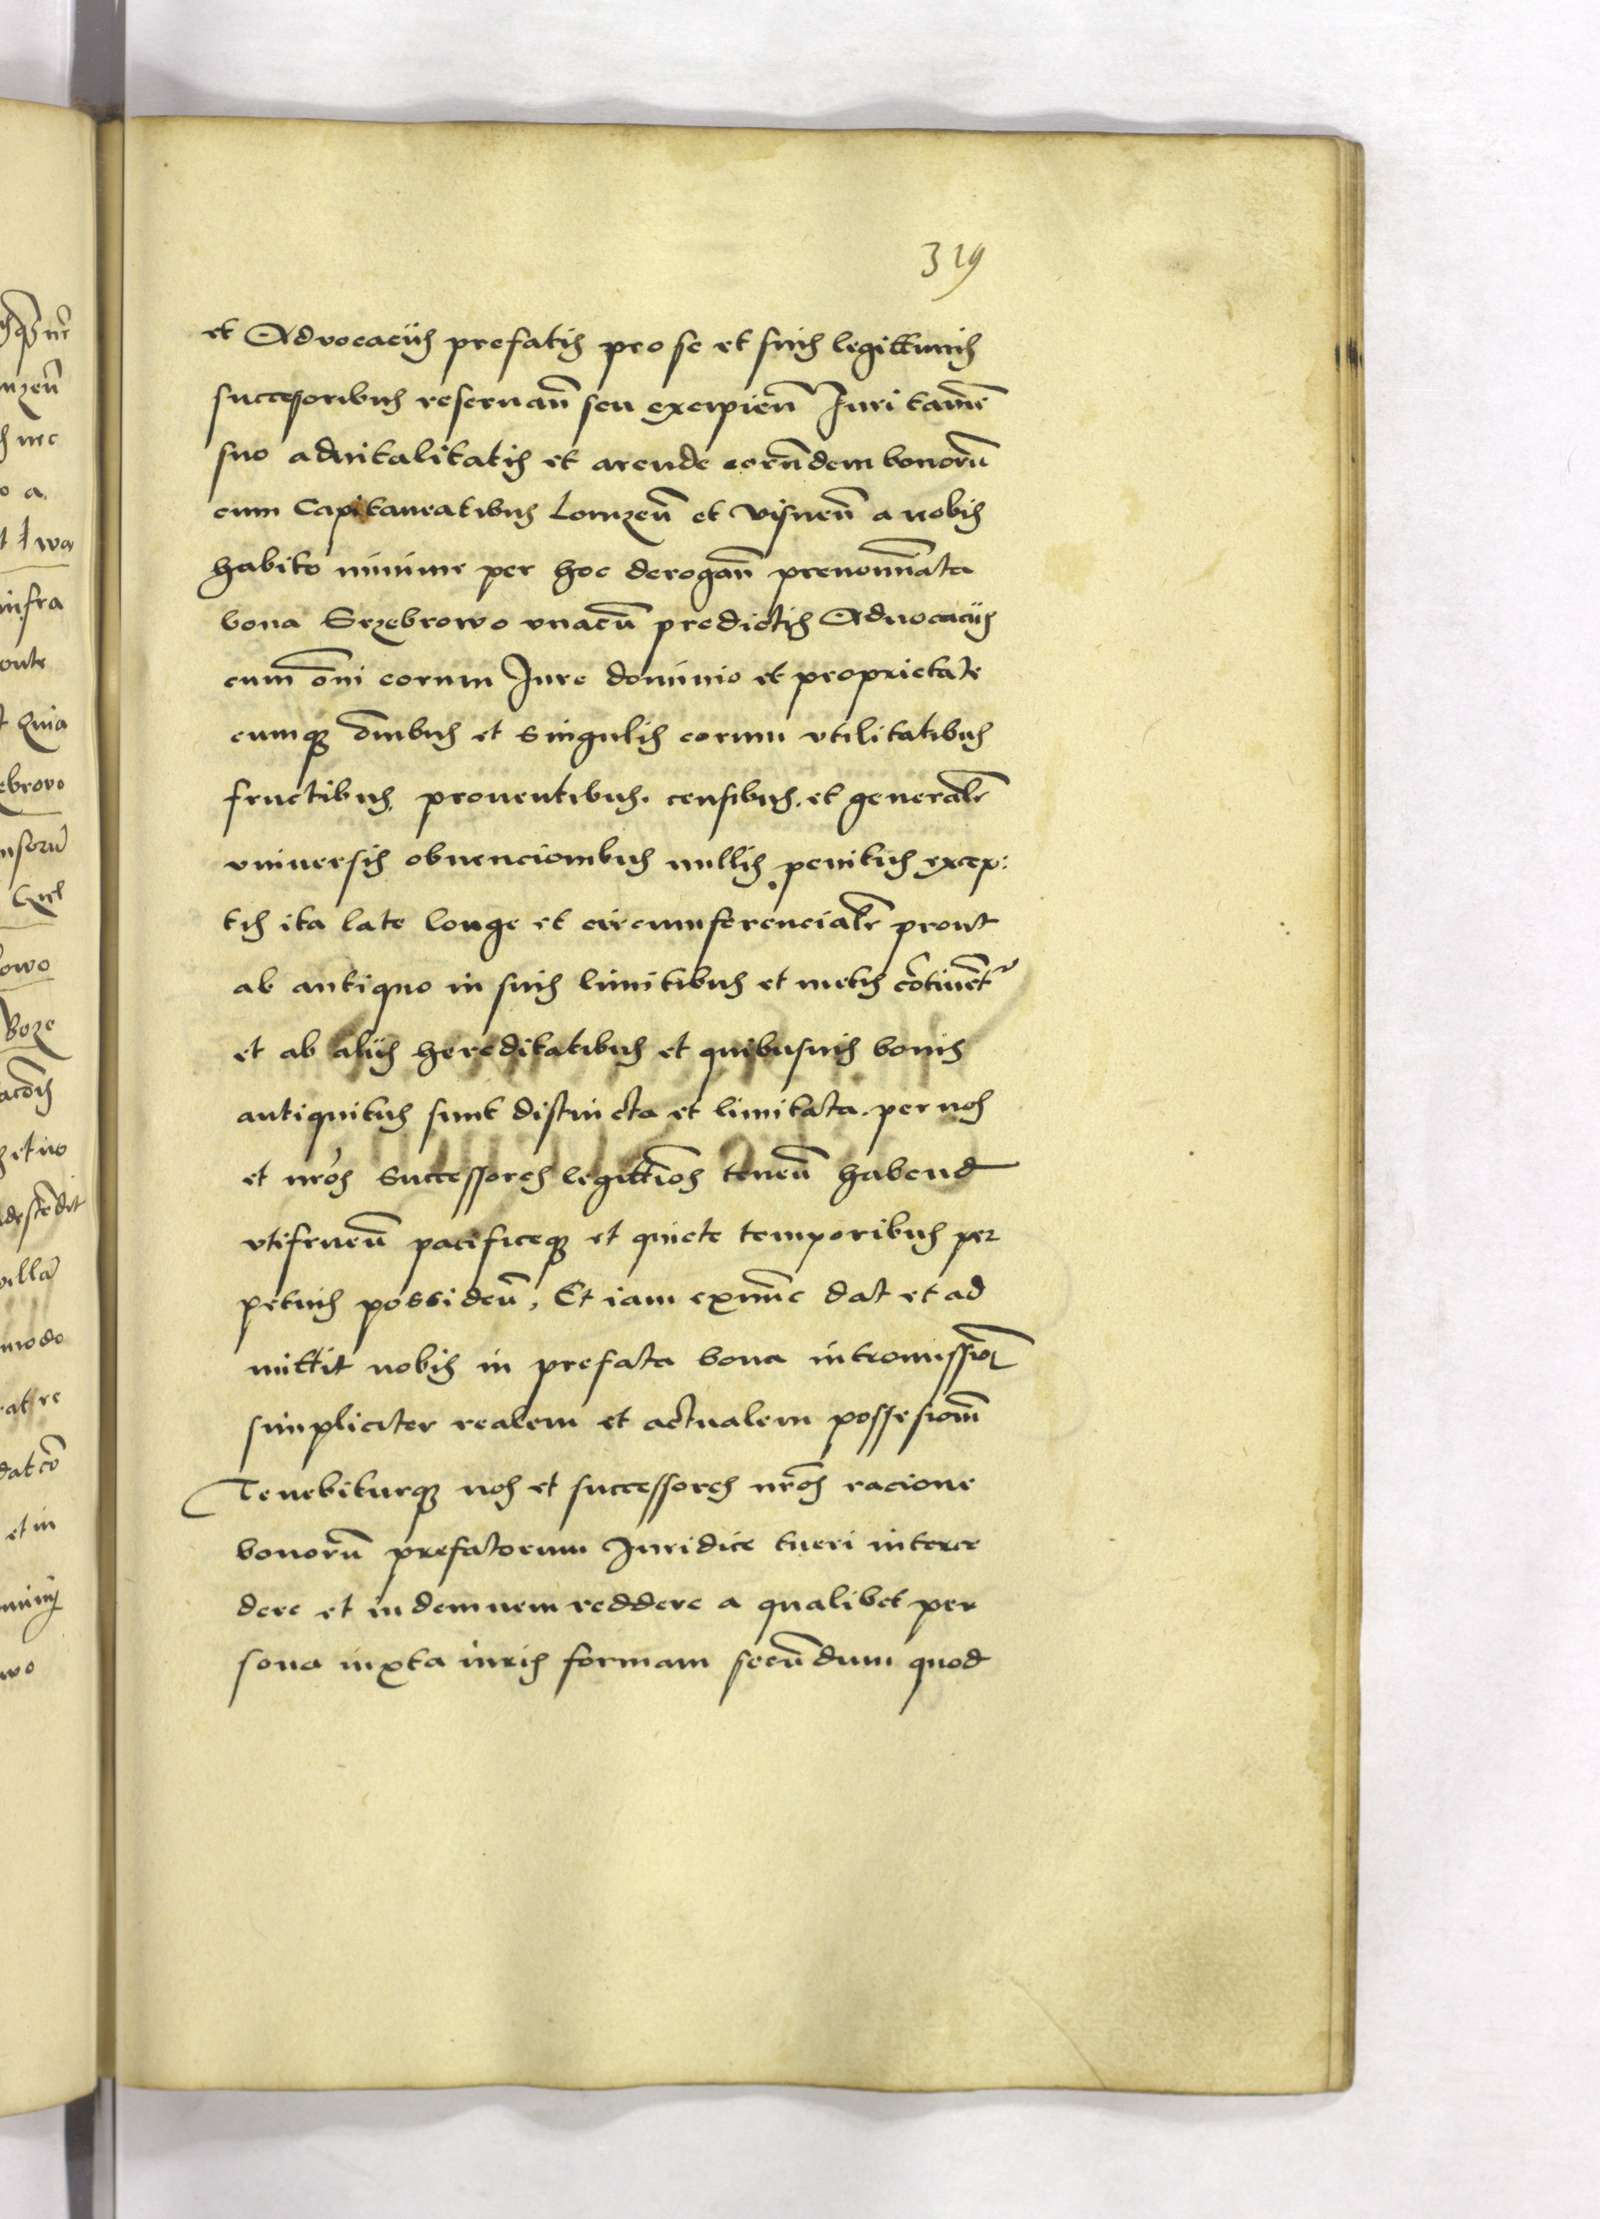 319
et Advocaciis prefatis pro se et suis legittimis
successoribus reseruan̄ seu excipien̄ Juri tamē
suo aduitalitatis et arende eorūdem bonorū
cum Capitaneatibus Lomzen̄ et Visnen̄ a nobis
habito minime per hoc derogan̄ prenomīata
bona Srzebrowo vnacū predictis Aduocaciis
cum ōni eorum Jure dominio et proprietate
cumqꝫ ōmibus et singulis eorum vtilitatibus
fructibus, prouentibus. censibus. et generalr̄
vniuersis obuencionibus nullis penitus excep:
tis ita late longe et circumferencialr̄ prout
ab antiquo in suis limitibus et metis cōtinēt᷑
et ab aliis hereditatibus et quibusuis bonis
antiquitus sunt distincta et limitata. per nos
et nr̄os successores legittīos tenen̄ habend
vtifruen̄ pacificeqꝫ et quiete temporibus per
petuis possiden̄, Et iam exnūc dat et ad
mittit nobis in prefata bona intromissiōꝫ
simpliciter realem et actualem possesionē
Tenebiturqꝫ nos et successores nr̄os racione
bonorū prefatorum Juridice tueri interce
dere et indemnem reddere a qualibet per
sona iuxta iuris formam secūdum quod